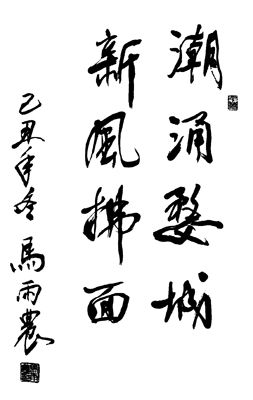 潮涌婺城
新風拂面
己丑年冬馬雨農